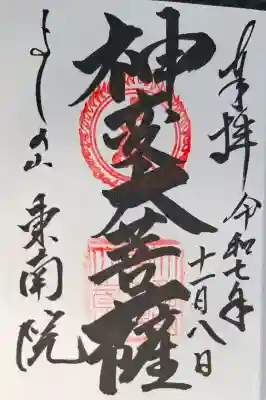 奉拝 令和七年
十一月八日
神变大菩薩
よしの山 東南院